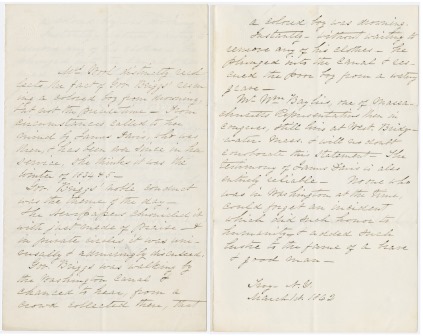 Mrs. Wool distinctly recol-
lects the fact of Gov Briggs' rescu-
ing a colored boy from drowning,
but not the
circumstances
by James Davis, who was
then, & has been ever since in the
service. She thinks it was the
winter of 1834-5 —
Gov. Briggs' noble conduct
was the theme of the day —
The Newspapers
with just meed of praise — &
in private circles it was uni-
versally & admiringly discussed.
Gov. Briggs was walking by
the Washington Canal &
chanced to hear, from a
crowd collected there, that
a colored boy was drowning.
Instantly — without waiting to
remove any of his clothes — he
plunged into the Canal & res-
cued the poor boy from a watery
grave —
Mr. Wm Baylies, one of Massa-
chusetts Representatives then in
Congress, still lives at West Bridge-
water Mass. & will no doubt
corroborate this statement — The
testimony of James Davis is also
entirely reliable — No one who
was in Washington at the time,
could forget an incident
which did such honor to
humanity & added such
lustre to the fame of a brave
& good man —
Troy. N.Y.
March 1863